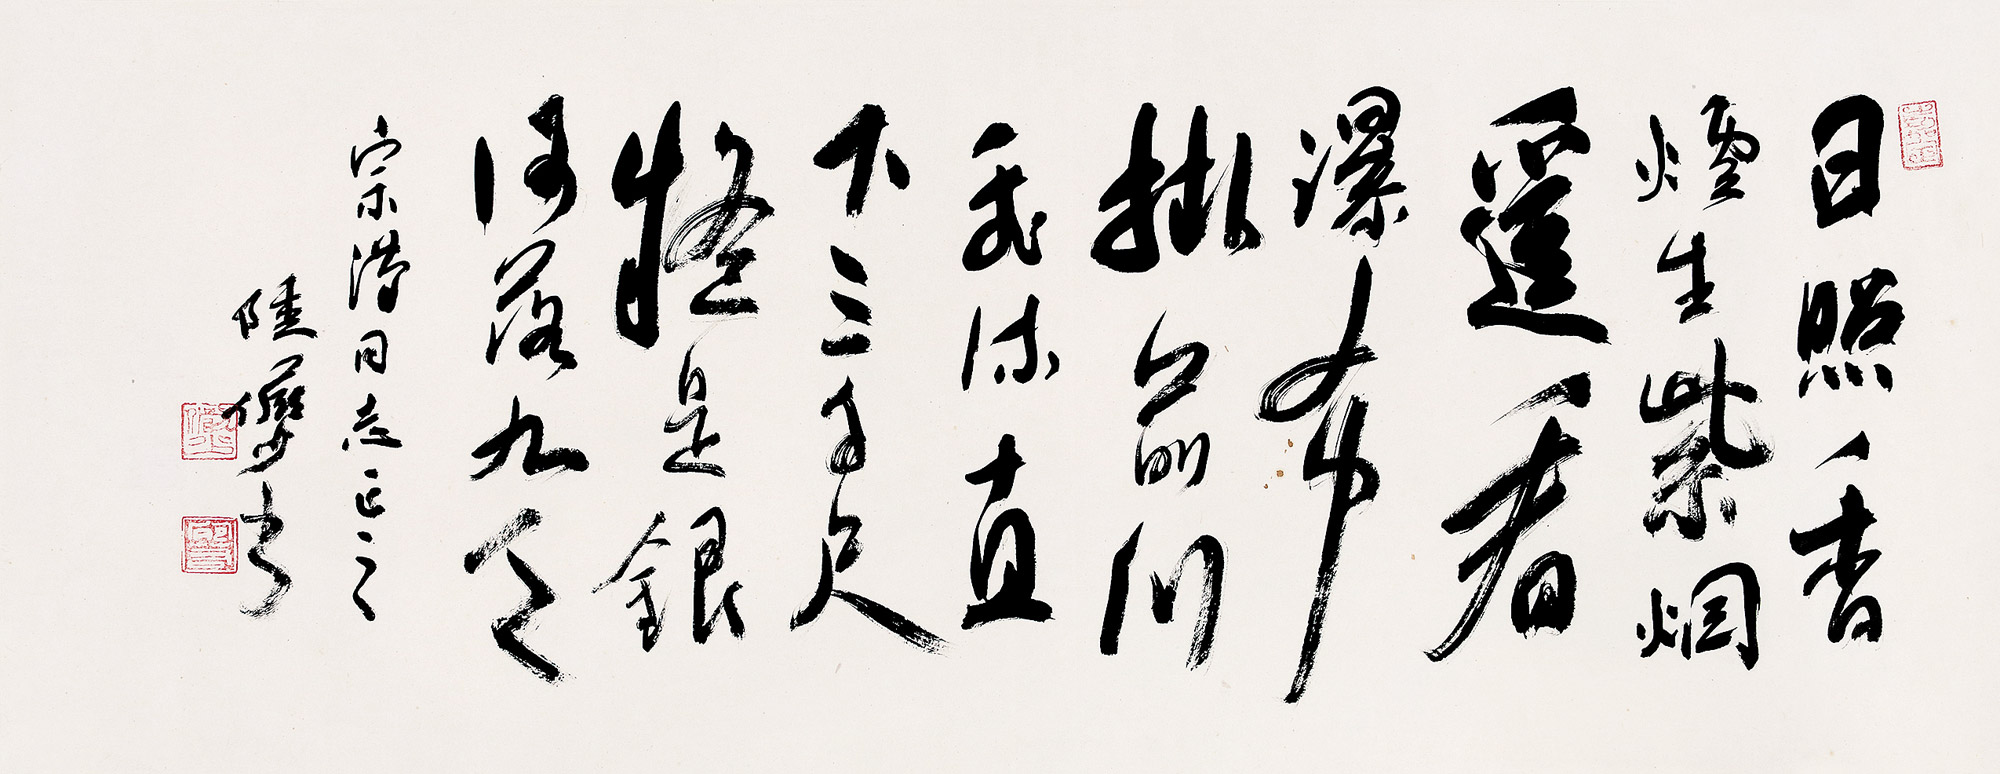 日照香
爐生紫烟
遥看
瀑布
掛前川
飛流直
下三千尺
疑是銀
河落九天
宗同志正之
陸儼少書